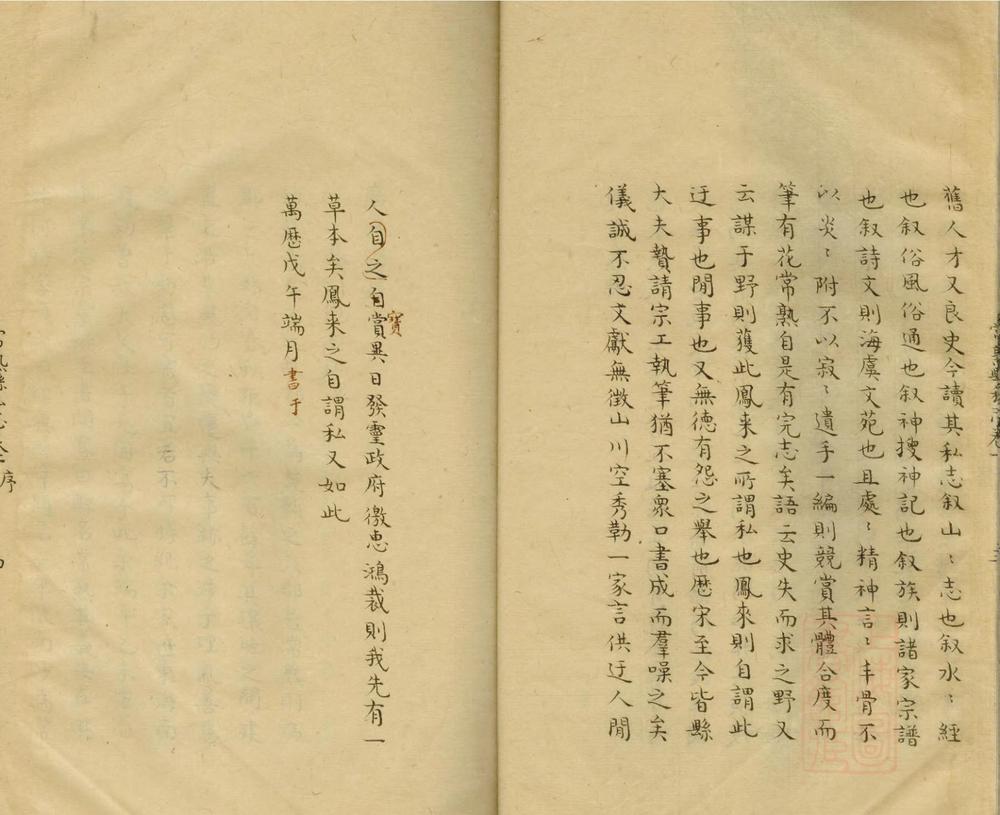 舊人才又良史今讀其私志叙山〻志也叙水〻經
也叙俗風俗通也叙神搜神記也叙族則諸家宗譜
也叙詩文則海虞文苑也且處〻精神言〻丰骨不
以炎〻附不以寂〻遺手一編則競賞其體合度而
筆有花常熟自是有完志矣語云史失而求之野又
云謀于野則獲此鳳来之所謂私也鳳來則自謂此
迂事也閒事也又無德有怨之舉也歷宋至今皆縣
大夫贄請宗工執筆猶不塞衆口書成而羣噪之矣
儀誠不忍文獻無徵山川空秀勒一家言供迂人閒
人自之自賞異日發靈政府徼惠鴻裁則我先有一
寳
草本矣鳳来之自謂私又如此
萬歷戊午端月書于
序